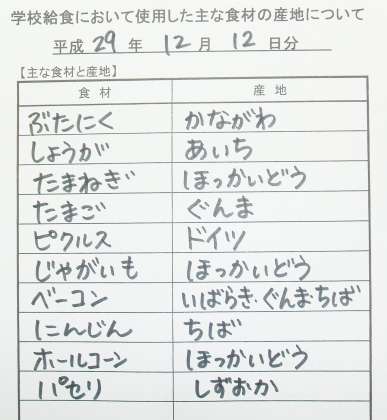 学校給食において使用した主な食材の産地について
平成 29 年 12 月 12 日分
【主な食材と産地】
食材 産地
ぶたにく かながわ
しょうが あいち
たまねぎ ほっかいどう
たまご ぐんま
ピクルス ドイツ
じゃがいも ほっかいどう
ベーコン いばらき・ぐんま・ちば
にんじん ちば
ホールコーン ほっかいどう
パセリ しずおか